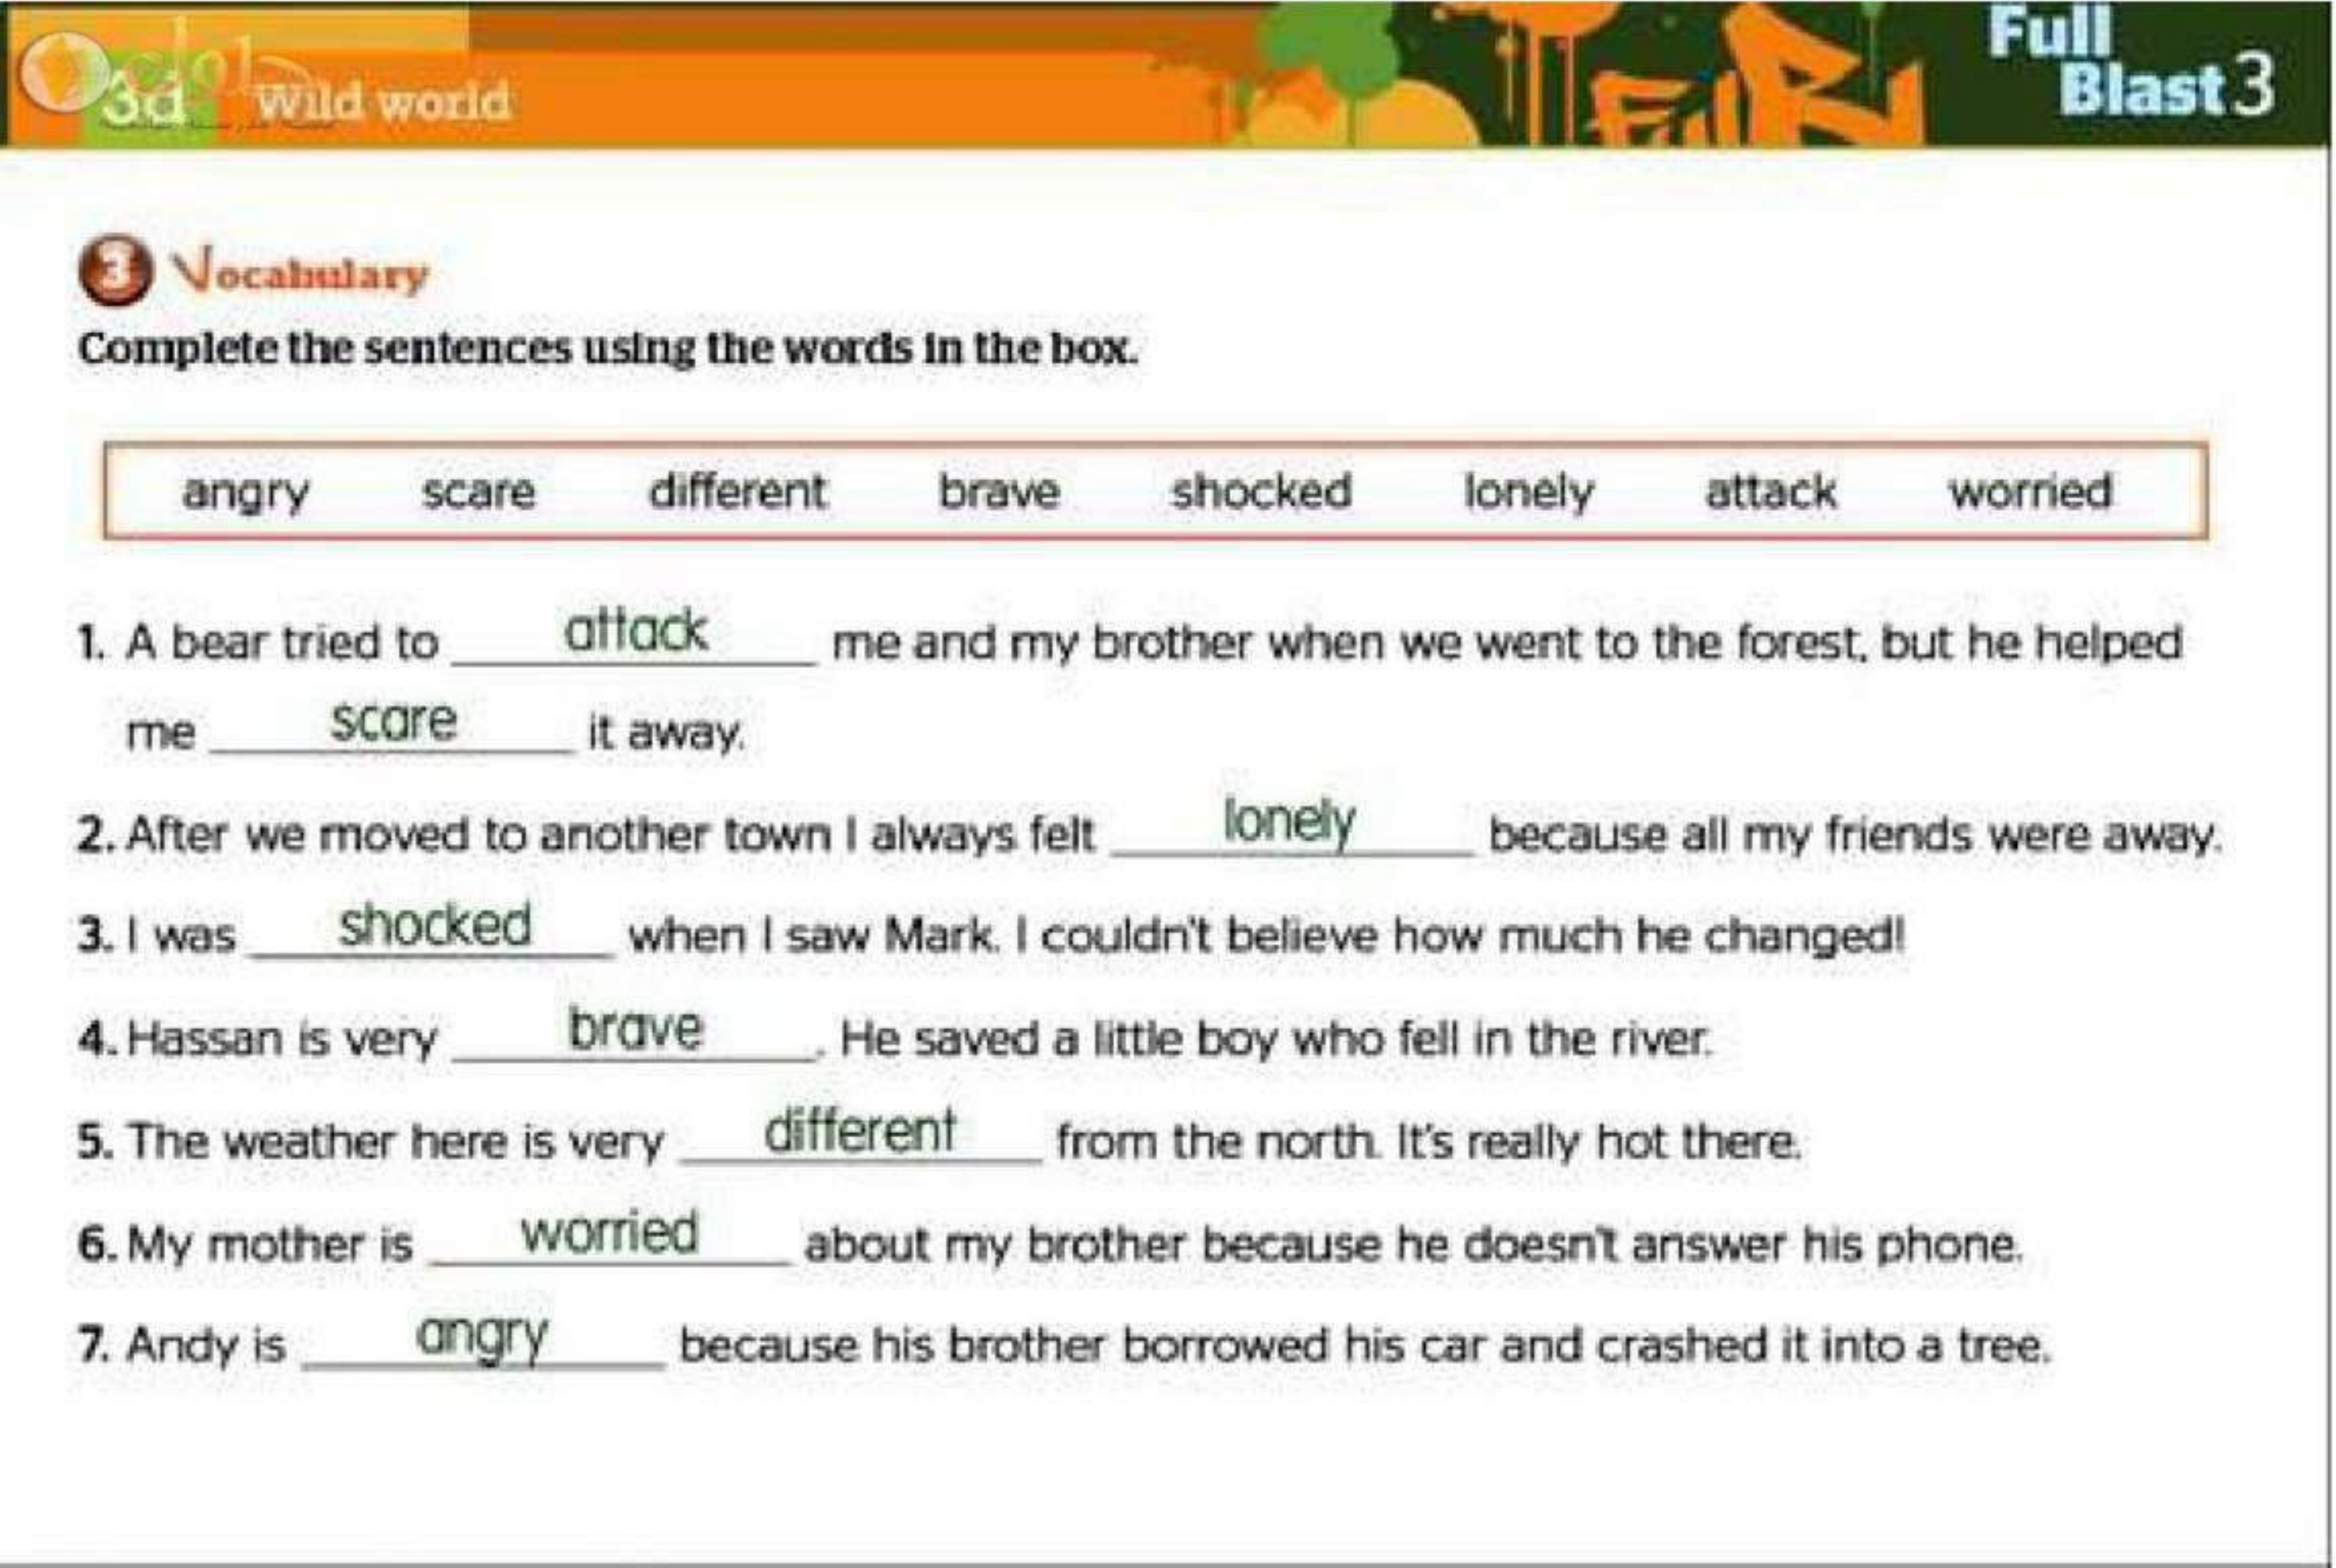 3d Wild world
Full
Blast 3
3 Vocabulary
Complete the sentences using the words in the box.
angry scare different brave shocked lonely attack worried
1. A bear tried to attack me and my brother when we went to the forest, but he helped
me scare it away.
2. After we moved to another town I always felt lonely because all my friends were away.
3. I was shocked when I saw Mark. I couldn't believe how much he changed!
4. Hassan is very brave. He saved a little boy who fell in the river.
5. The weather here is very different from the north. It's really hot there.
6. My mother is worried about my brother because he doesn't answer his phone.
7. Andy is angry because his brother borrowed his car and crashed it into a tree.